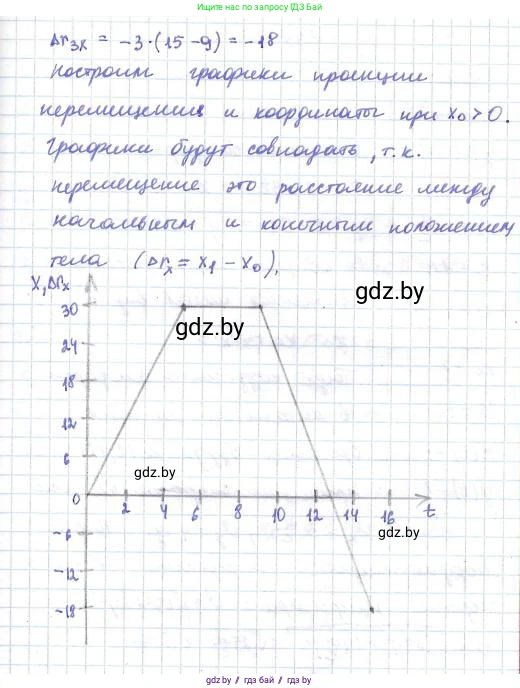 Ищите нас по запросу ГДЗ бел
Δr₃ₓ = -3·(15-9) = -18
Построим графики проекции
перемещения и координаты при x₀>0.
Графики будут совпадать, т.к.
перемещение это расстояние между
начальным и конечным положением
тела (Δrₓ = x₁ - x₀).
x, Δrₓ
gdz.by
30
gdz.by
24
18
12
6
gdz.by
0
2 4 6 8 10 12 14 16 t
gdz.by
-6
-12
-18
gdz.by / гдз бай / gdz by